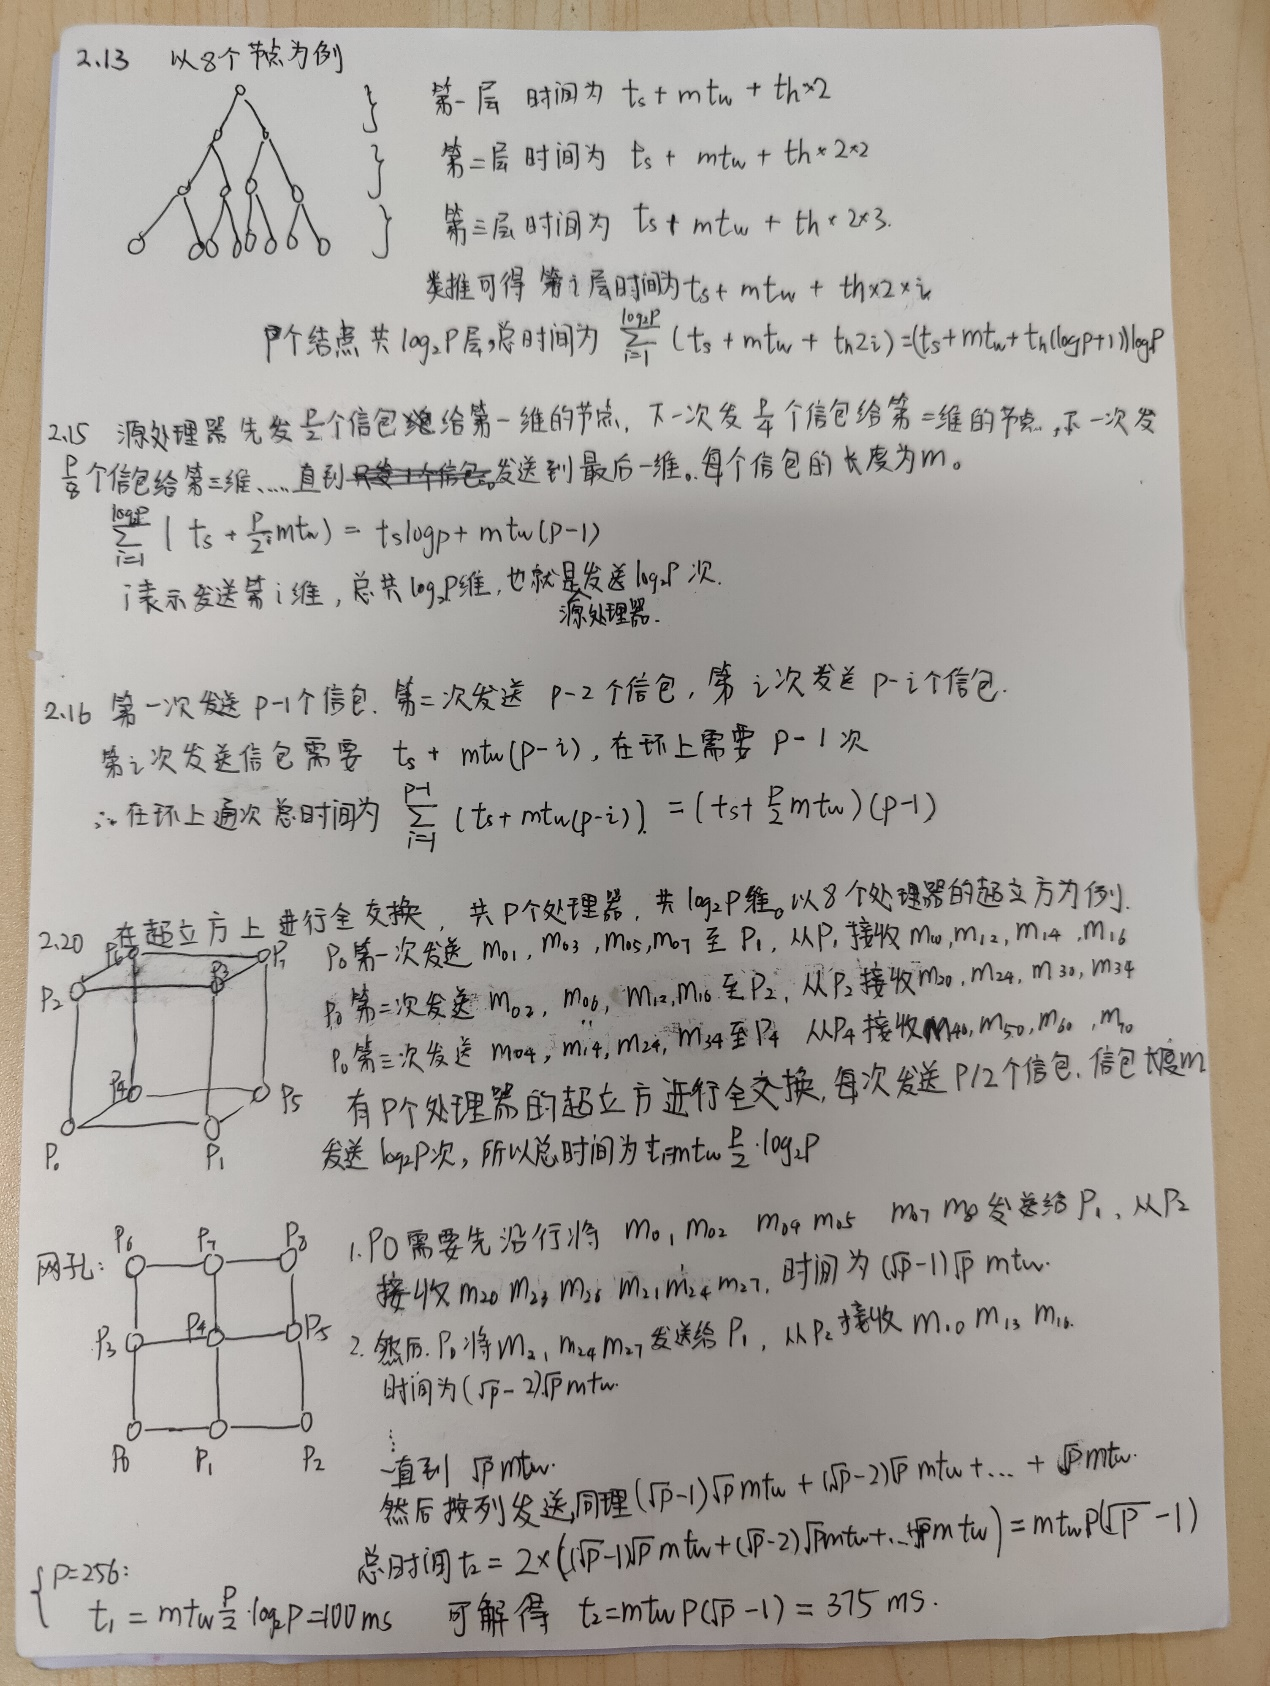 2.13 以8个节点为例
第一层 时间为 ts + mtw + th×2
第二层时间为 ts + mtw + th×2×2
第三层时间为 ts + mtw + th×2×3.
类推可得 第i层时间为ts + mtw + th×2×i
P个结点 共log₂P层,总时间为 \sum_{i=1}^{log₂P} (ts + mtw + th2i) = (ts+mtw+th(logp+1))logP
2.15 源处理器先发 P/2 个信包 给第一维的节点, 下一次发 P/4 个信包给第二维的节点, 下一次发
P/8 个信包给第三维、.... 直到 发送到最后一维。每个信包的长度为m。
\sum_{i=1}^{log₂P} ( ts + P/2^i mtw) = tslogp + mtw(P-1)
i表示发送第i维, 总共log₂P维, 也就是源处理器发送log₂P 次.
2.16 第一次发送 P-1个信包. 第二次发送 P-2个信包, 第i次发送 P-i个信包.
第i次发送信包需要 ts + mtw(P-i), 在环上需要 P-1 次
∴ 在环上通次总时间为 \sum_{i=1}^{P-1} (ts+mtw(P-i)) = (ts+ P/2 mtw)(P-1)
2.20 在超立方上进行全交换, 共P个处理器, 共log₂P维。以8个处理器的超立方为例.
P₀第一次发送 m01, m03, m05, m07 至 P₁, 从P₁接收m10, m12, m14, m16
P₀第二次发送 m02, m06, m12, m16 至P₂, 从P₂接收m20, m24, m30, m34
P₀第三次发送 m04, m14, m24, m34至P4 从P4接收m40, m50, m60, m70
有P个处理器的超立方进行全交换, 每次发送P/2个信包, 信包长度m
发送log₂P次, 所以总时间为t₁=mtw P/2·log₂P
P6 P7
P2 P3
P4 P5
P₀ P₁
网孔:
P6 P7 P8
P3 P4 P5
P0 P1 P2
1. P0需要先沿行将 m01 m02 m04 m05 m07 m08 发送给P₁, 从P2
接收m20 m23 m26 m21 m24 m27, 时间为(√P-1)√P mtw.
2. 然后, P₀将m21 m24 m27发送给P₁, 从P2接收m10 m13 m16.
时间为(√P-2)√P mtw.
⋮
一直到 √P mtw.
然后按列发送,同理(√P-1)√P mtw + (√P-2)√P mtw + ... + √P mtw.
总时间t₂ = 2×((√P-1)√P mtw + (√P-2)√P mtw + ... + √P mtw) = mtwP(√P-1)
P=256:
t₁ = mtw P/2·log₂P = 100ms 可解得 t₂=mtw P(√P-1) = 375 ms.